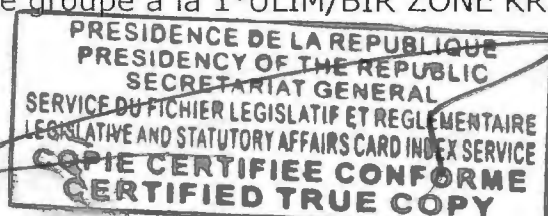 groupe à la 1°ULIM/BIR ZONE
PRESIDENCE DE LA REPUBLIQUE
PRESIDENCY OF THE REPUBLIC
SECRETARIAT GENERAL
SERVICE DU FICHIER LEGISLATIF ET REGLEMENTAIRE
LEGISLATIVE AND STATUTORY AFFAIRS CARD INDEX SERVICE
COPIE CERTIFIEE CONFORME
CERTIFIED TRUE COPY